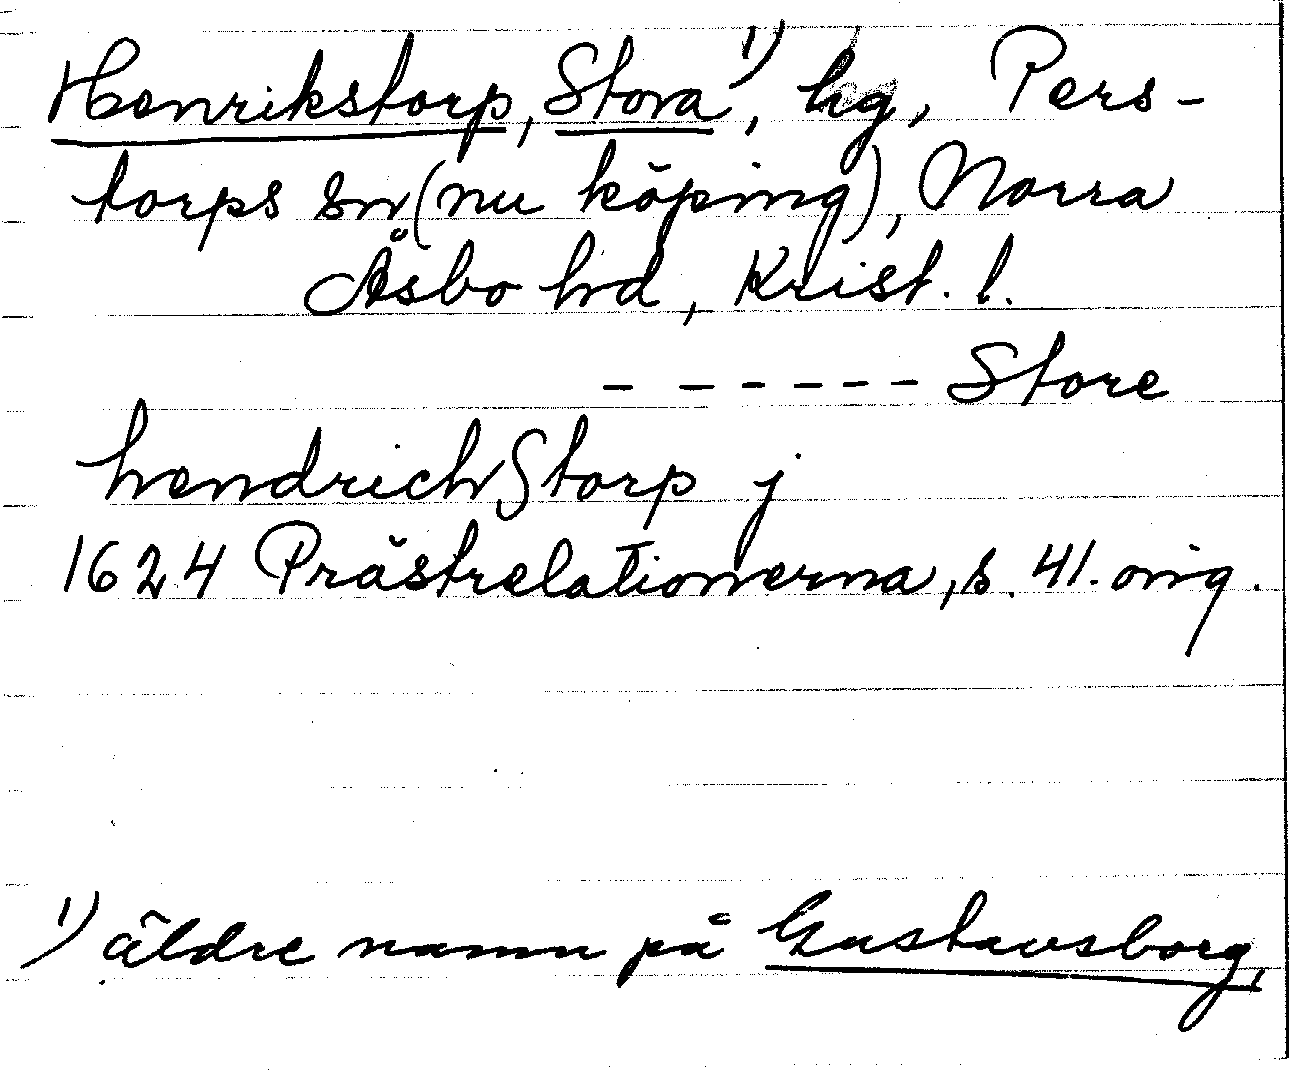 Henrikstorp, Stora 1), hg, Pers-
torps sn (nu köping), Norra
Åsbo hd, Krist. l.
- - - - - - Store
hendrichStorp j
1624 Prästrelationerna, s. 41. orig.
1) äldre namn på Gustavsborg,